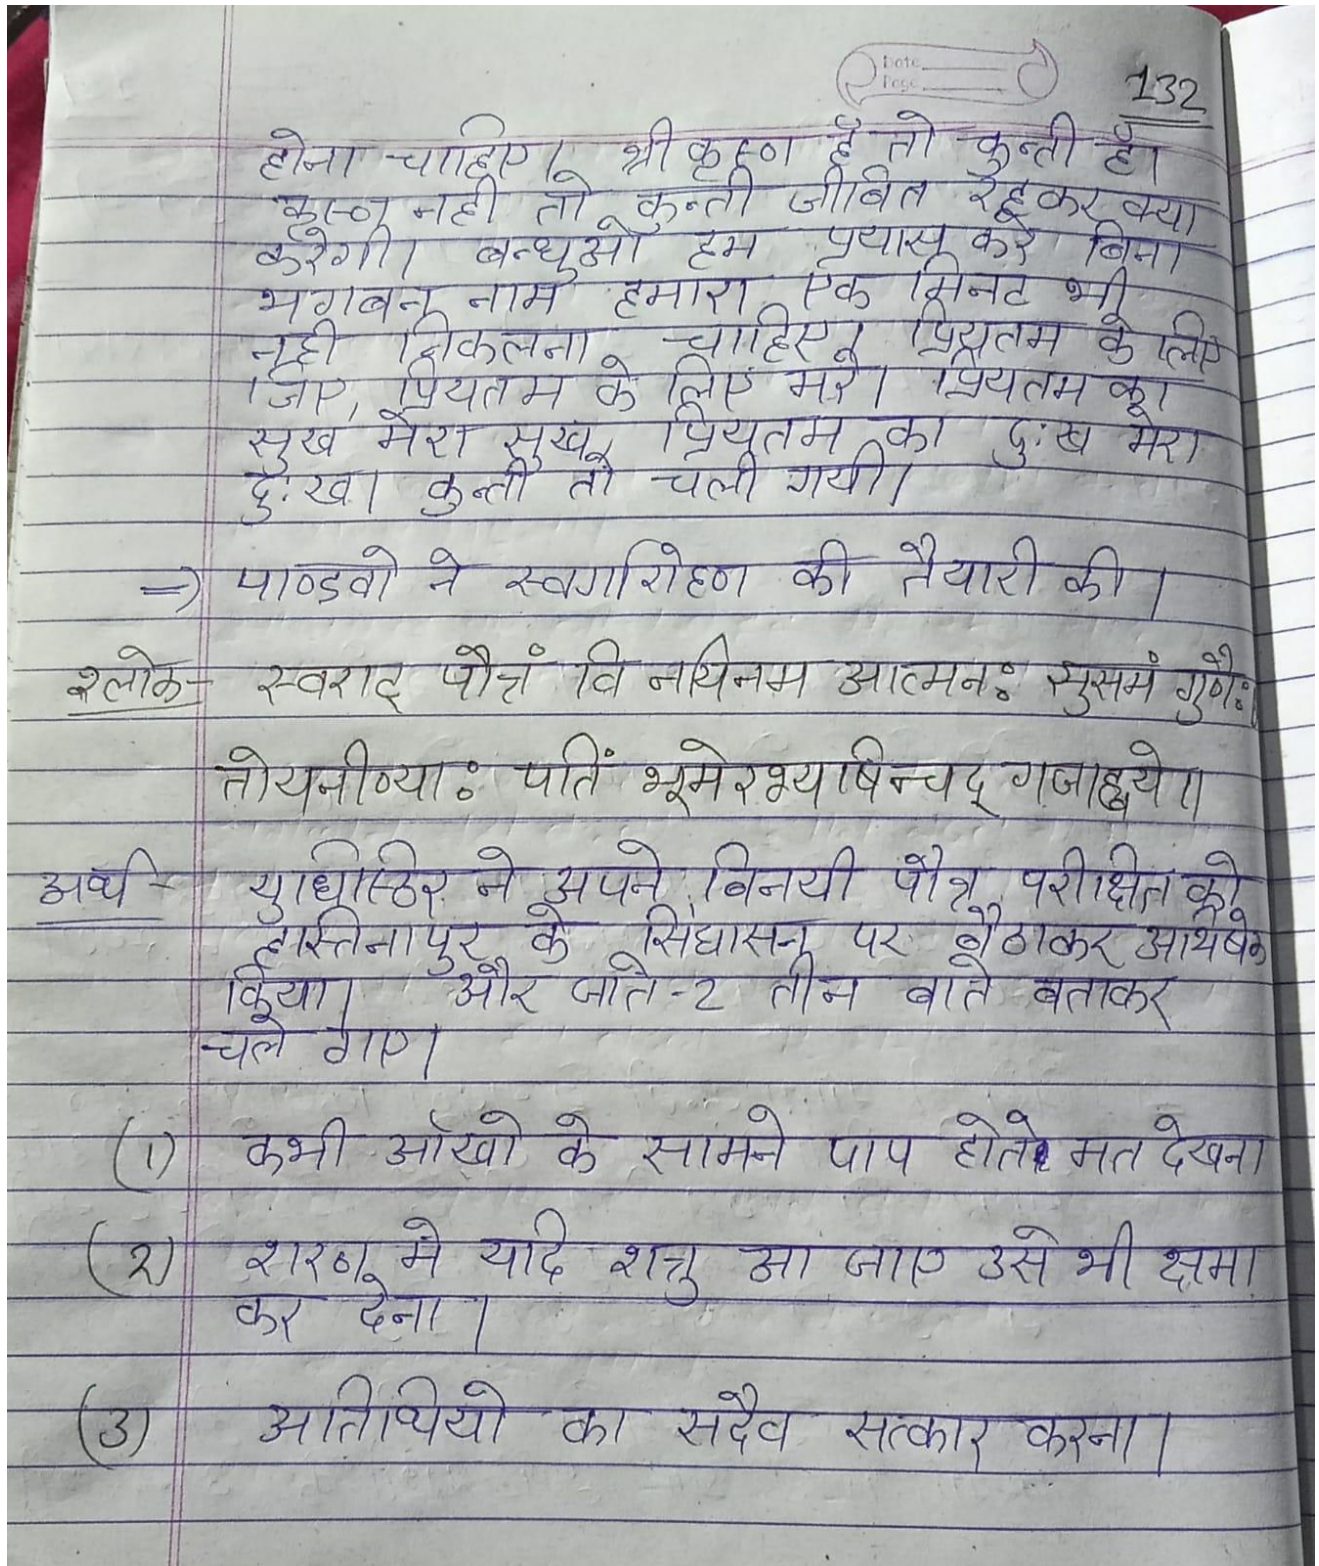 Date
Page
132
होना चाहिए। श्री कृष्ण है तो कुन्ती है।
कृष्ण नही तो कुन्ती जीवित रहकर क्या
करेगी। बन्धुओ हम प्रयास करे बिना
भगबन नाम हमारा एक मिनट भी
नही निकलना चाहिए। प्रियतम के लिए
जिए, प्रियतम के लिए मरे। प्रियतम का
सुख मेरा सुख, प्रियतम का दुःख मेरा
दुःख। कुन्ती तो चली गयी।
=) पाण्डवो ने स्वर्गारोहण की तैयारी की।
श्लोक- स्वराट् पौत्रं विनयिनम आत्मनः सुसमं गुणैः।
तोयनीव्याः पतिं भूमेरभ्यषिन्चद् गजाह्वये॥
अर्थ - युधिष्ठिर ने अपने विनयी पौत्र परीक्षित को
हास्तिनापुर के सिंघासन पर बैठाकर अभिषेक
किया। और जाते-2 तीन बाते बताकर
चले गए।
(1) कभी आँखो के सामने पाप होते मत देखना
(2) शरण मे यदि शत्रु आ जाए उसे भी क्षमा
कर देना।
(3) अतिथियो का सदैव सत्कार करना।